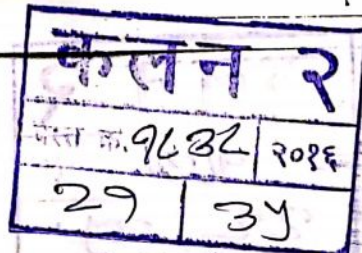 कलन २
दस्त क्र. १८३८ २०१६
२१ ३५